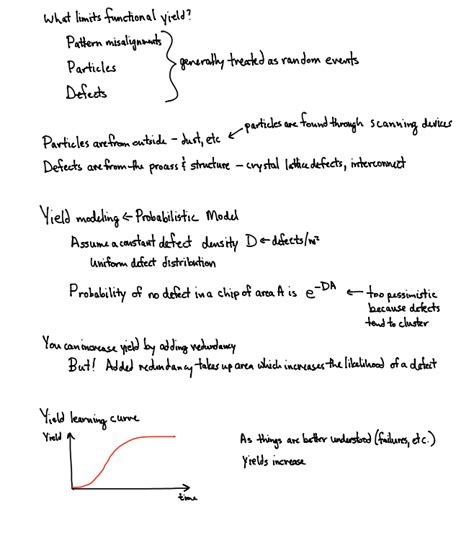 What limits functional yield?
Pattern misalignments
Particles
Defects
generally treated as random events
particles are found through scanning devices
Particles are from outside - dust, etc
Defects are from the process & structure - crystal lattice defects, interconnect
Yield modeling ← Probabilistic Model
Assume a constant defect density D ← defects/m²
Uniform defect distribution
Probability of no defect in a chip of area A is e^-DA ← too pessimistic
because defects
tend to cluster
You can increase yield by adding redundancy
But! Added redundancy takes up area which increases the likelihood of a defect
Yield learning curve
Yield
time
As things are better understood (failures, etc.)
Yields increase